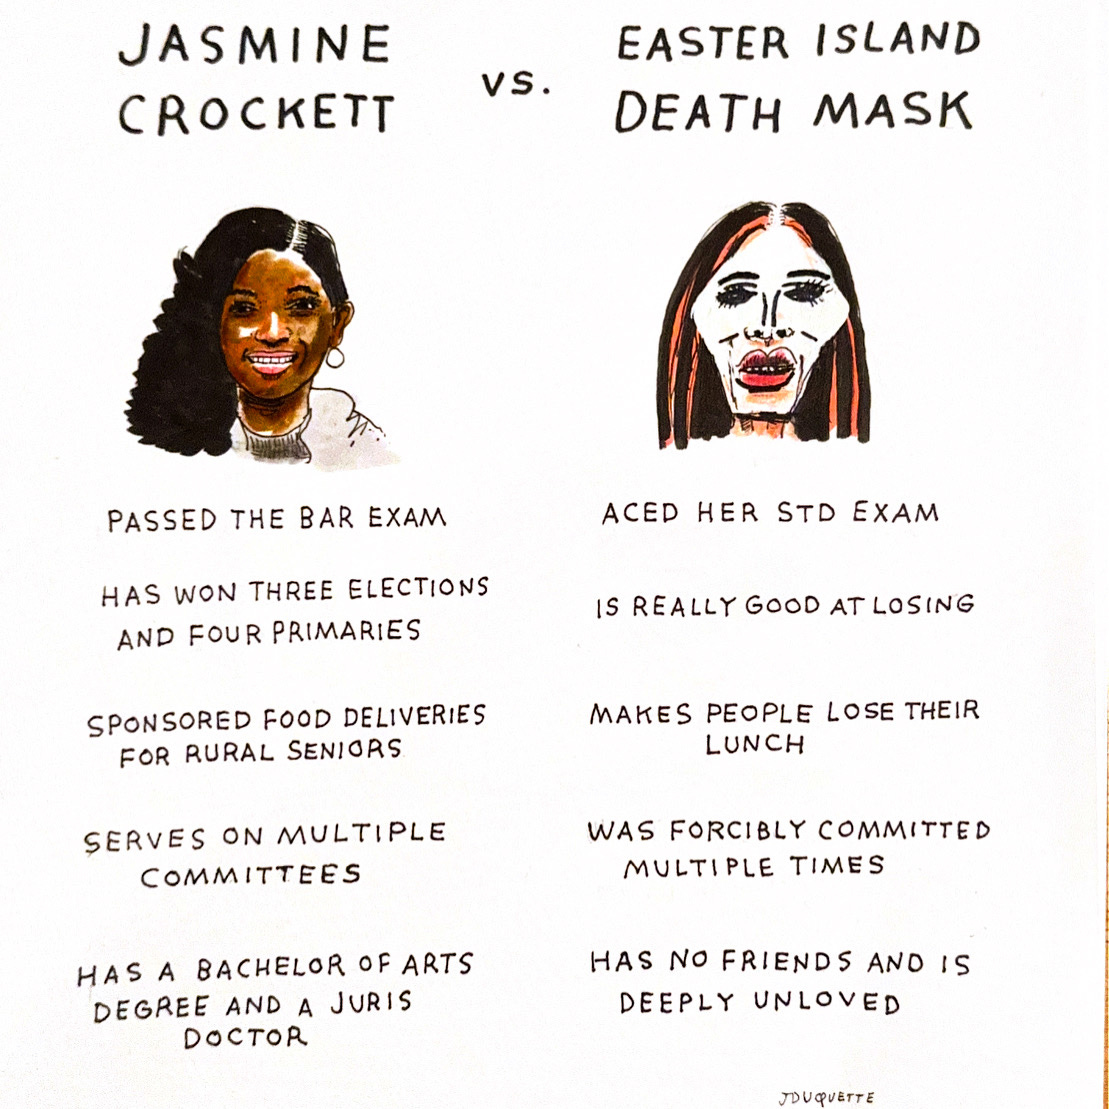 JASMINE
CROCKETT
VS.
EASTER ISLAND
DEATH MASK
PASSED THE BAR EXAM
HAS WON THREE ELECTIONS
AND FOUR PRIMARIES
SPONSORED FOOD DELIVERIES
FOR RURAL SENIORS
SERVES ON MULTIPLE
COMMITTEES
HAS A BACHELOR OF ARTS
DEGREE AND A JURIS
DOCTOR
ACED HER STD EXAM
IS REALLY GOOD AT LOSING
MAKES PEOPLE LOSE THEIR
LUNCH
WAS FORCIBLY COMMITTED
MULTIPLE TIMES
HAS NO FRIENDS AND IS
DEEPLY UNLOVED
JDUQUETTE